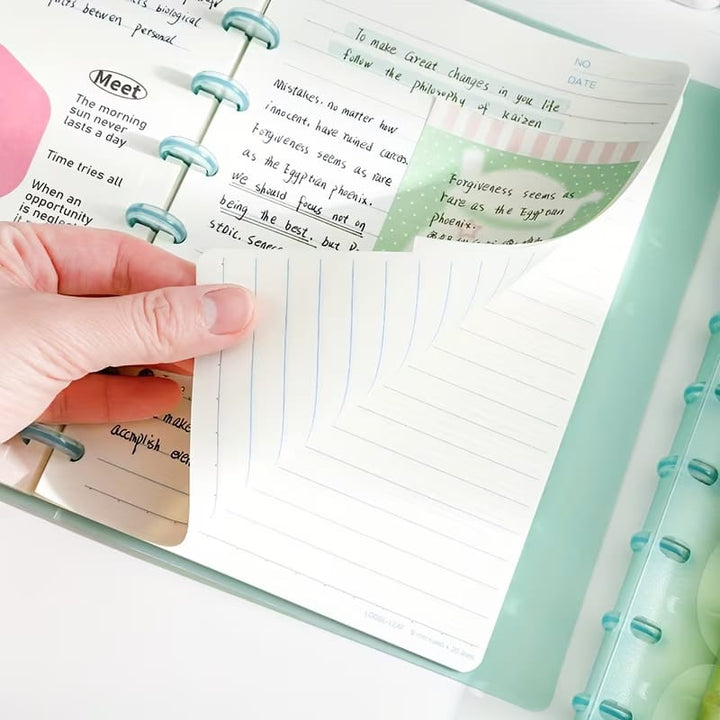 biological
between personal
Meet
The morning
sun never
lasts a day
Time tries all
When an
opportunity
is neglec
NO
DATE
To make Great changes in you life
follow the philosophy of kaizen
Mistakes, no matter how
innocent, have ruined careers
Forgiveness seems as rare
as the Egyptian phoenix.
we should focus not on
being the best, but
stoic, Senec
Forgiveness seems as
rare as the Egyptian
phoenix.
make
accomplish even
LOOSE-LEAF